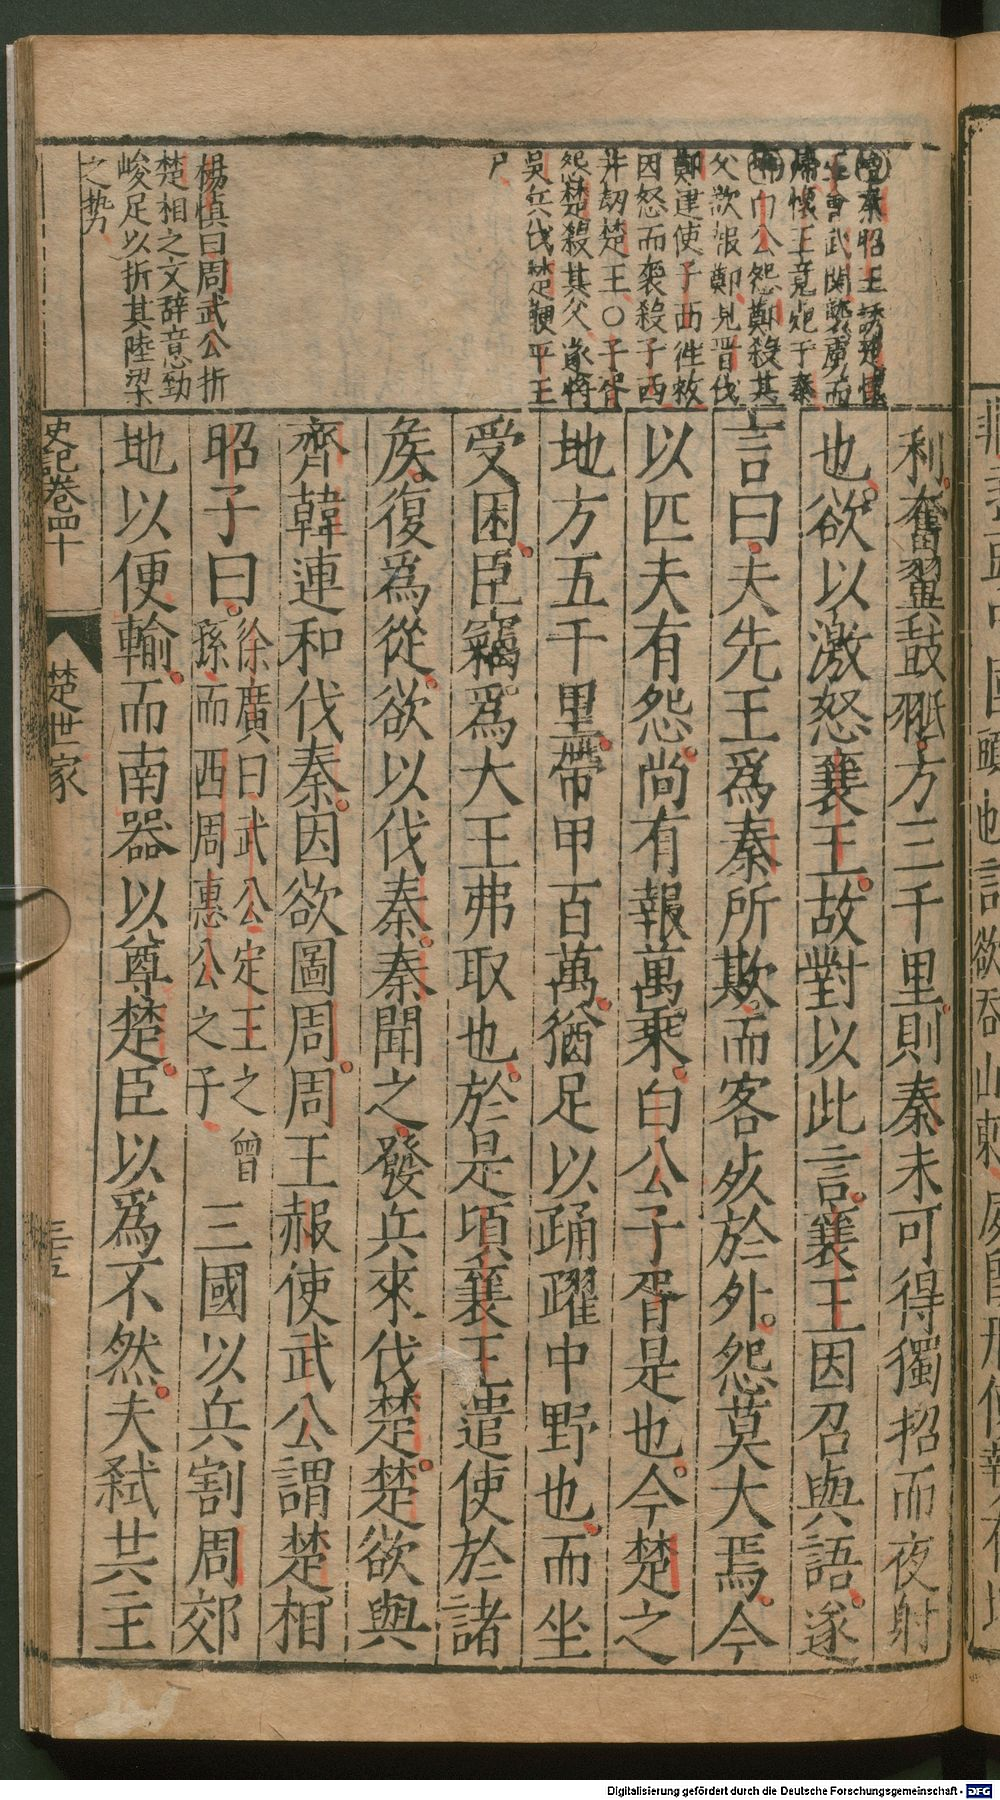 利奮翼鼓𦐊方三千里則秦未可得獨招而夜射
也欲以激怒襄王故對以此言襄王因召與語遂
言曰夫先王爲秦所欺而客死於外怨莫大焉今
以匹夫有怨尚有報萬乘白公子胥是也今楚之
地方五千里帶甲百萬猶足以踊躍中野也而坐
受困臣竊爲大王弗取也於是頃襄王遣使於諸
矦復爲從欲以伐秦秦聞之發兵來伐楚楚欲與
齊韓連和伐秦因欲圖周周王赧使武公謂楚相
昭子曰
徐廣曰武公定王之曾
孫而西周惠公之子
三國以兵割周郊
地以便輸而南器以尊楚臣以爲不然夫弑共主
秦昭王誘楚懷
王會武關
歸懷王竟死于秦
白公怨鄭殺其
父欲報鄭見晉伐
鄭建使子西往救
因怒而襲殺子西
幷劫楚王〇子胥
怨楚殺其父遂將
吳兵伐楚鞭平王
尸
楊慎曰周武公折
楚相之文辭意勁
峻足以折其陸梁
之勢
史記卷四十
楚世家
三十五
Digitalisierung gefördert durch die Deutsche Forschungsgemeinschaft - DFG